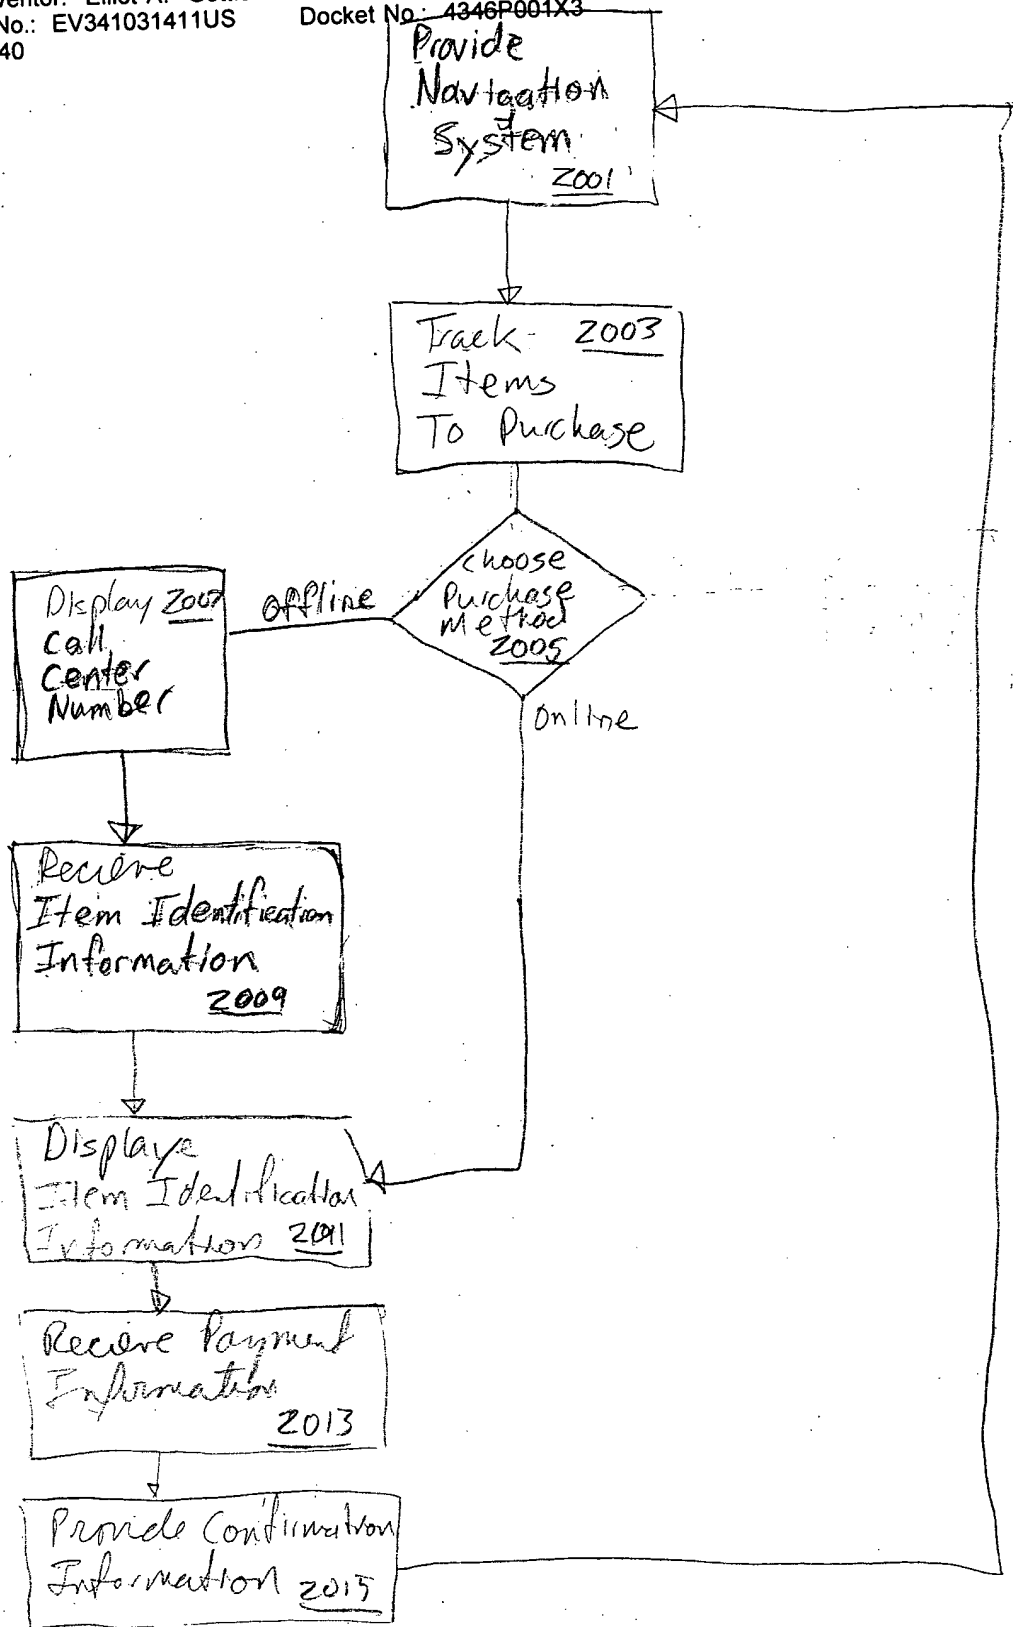 No.: EV341031411US Docket No.: 4346P001X3
40
Provide
Navigation
System
2001
Track 2003
Items
To Purchase
Choose
Purchase
Method
2005
offline
Online
Display 2007
Call
Center
Number
Recieve
Item Identification
Information
2009
Displaye
Item Identification
Information 2011
Recieve Payment
Information
2013
Provide Confirmation
Information 2015